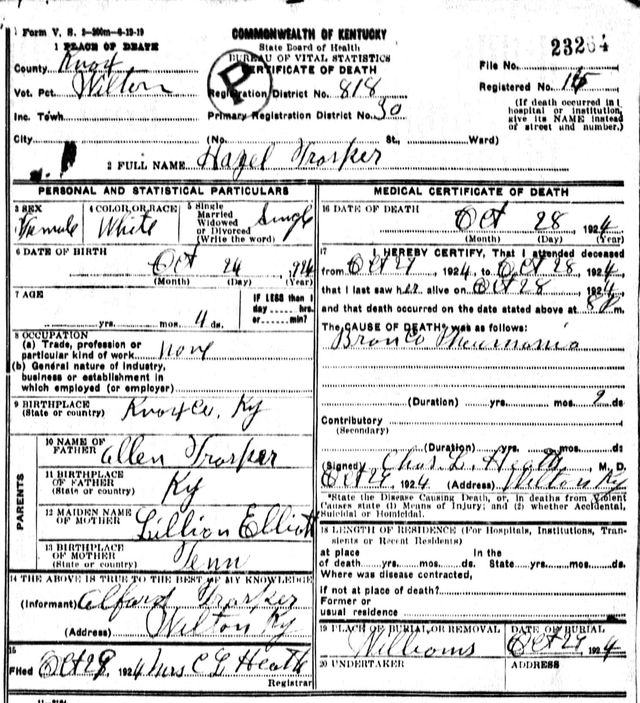 Form V. S. 3-300m-6-19-19
COMMONWEALTH OF KENTUCKY
State Board of Health
BUREAU OF VITAL STATISTICS
CERTIFICATE OF DEATH
23264
1 PLACE OF DEATH
County Knox
Vot. Pct. Wilton
Inc. Town
City
P
Registration District No. 818
Primary Registration District No. 30
(No. St., Ward)
File No.
Registered No.
(If death occurred in
hospital or institution,
give its NAME instead
of street and number.)
2 FULL NAME Hazel Trosper
PERSONAL AND STATISTICAL PARTICULARS
3 SEX
Female
4 COLOR OR RACE
White
5 Single
Married
Widowed
or Divorced
(Write the word)
Single
6 DATE OF BIRTH
Oct 24 1924
(Month) (Day) (Year)
7 AGE
yrs. mos. 4 ds.
IF LESS than 1
day hrs.
or min?
8 OCCUPATION
(a) Trade, profession or
particular kind of work none
(b) General nature of industry,
business or establishment in
which employed (or employer)
9 BIRTHPLACE
(State or country) Knox Co, Ky
PARENTS
10 NAME OF
FATHER Allen Trosper
11 BIRTHPLACE
OF FATHER
(State or country) Ky
12 MAIDEN NAME
OF MOTHER Lillion Elliott
13 BIRTHPLACE
OF MOTHER
(State or country) Tenn
14 THE ABOVE IS TRUE TO THE BEST OF MY KNOWLEDGE
(Informant) Alford Trosper
(Address) Wilton Ky
15
Filed Oct 29, 1924 Mrs C L Heath
Registrar
MEDICAL CERTIFICATE OF DEATH
16 DATE OF DEATH
Oct 28, 1924
(Month) (Day) (Year)
17 I HEREBY CERTIFY, That I attended deceased
from Oct 27, 1924, to Oct 28, 1924,
that I last saw her alive on Oct 28, 1924
and that death occurred on the date stated above at 8 P m.
The CAUSE OF DEATH* was as follows:
Bronco Pneumonia
(Duration) yrs. mos. 2 ds.
Contributory
(Secondary)
(Duration) yrs. mos. ds.
(Signed) Chas L. Heath, M. D.
Oct 29, 1924 (Address) Wilton Ky
*State the Disease Causing Death, or, in deaths from Violent
Causes state (1) Means of Injury; and (2) whether Accidental,
Suicidal or Homicidal.
18 LENGTH OF RESIDENCE (For Hospitals, Institutions, Tran-
sients or Recent Residents)
at place In the
of death yrs. mos. ds. State yrs. mos. ds.
Where was disease contracted,
if not at place of death?
Former or
usual residence
19 PLACE OF BURIAL OR REMOVAL
Williams
DATE OF BURIAL
Oct 29 1924
20 UNDERTAKER
ADDRESS